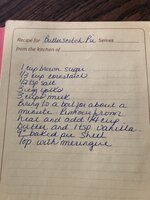 Recipe for Butterscotch Pie Serves
from the kitchen of
1 cup brown sugar
1/3 cup cornstarch
1/2 tsp salt
3 egg yolks
3 cups milk
Bring to a boil for about a
minute. Remove from
heat and add 1/4 cup
butter and 1 tsp vanilla
9" baked pie shell
Top with meringue